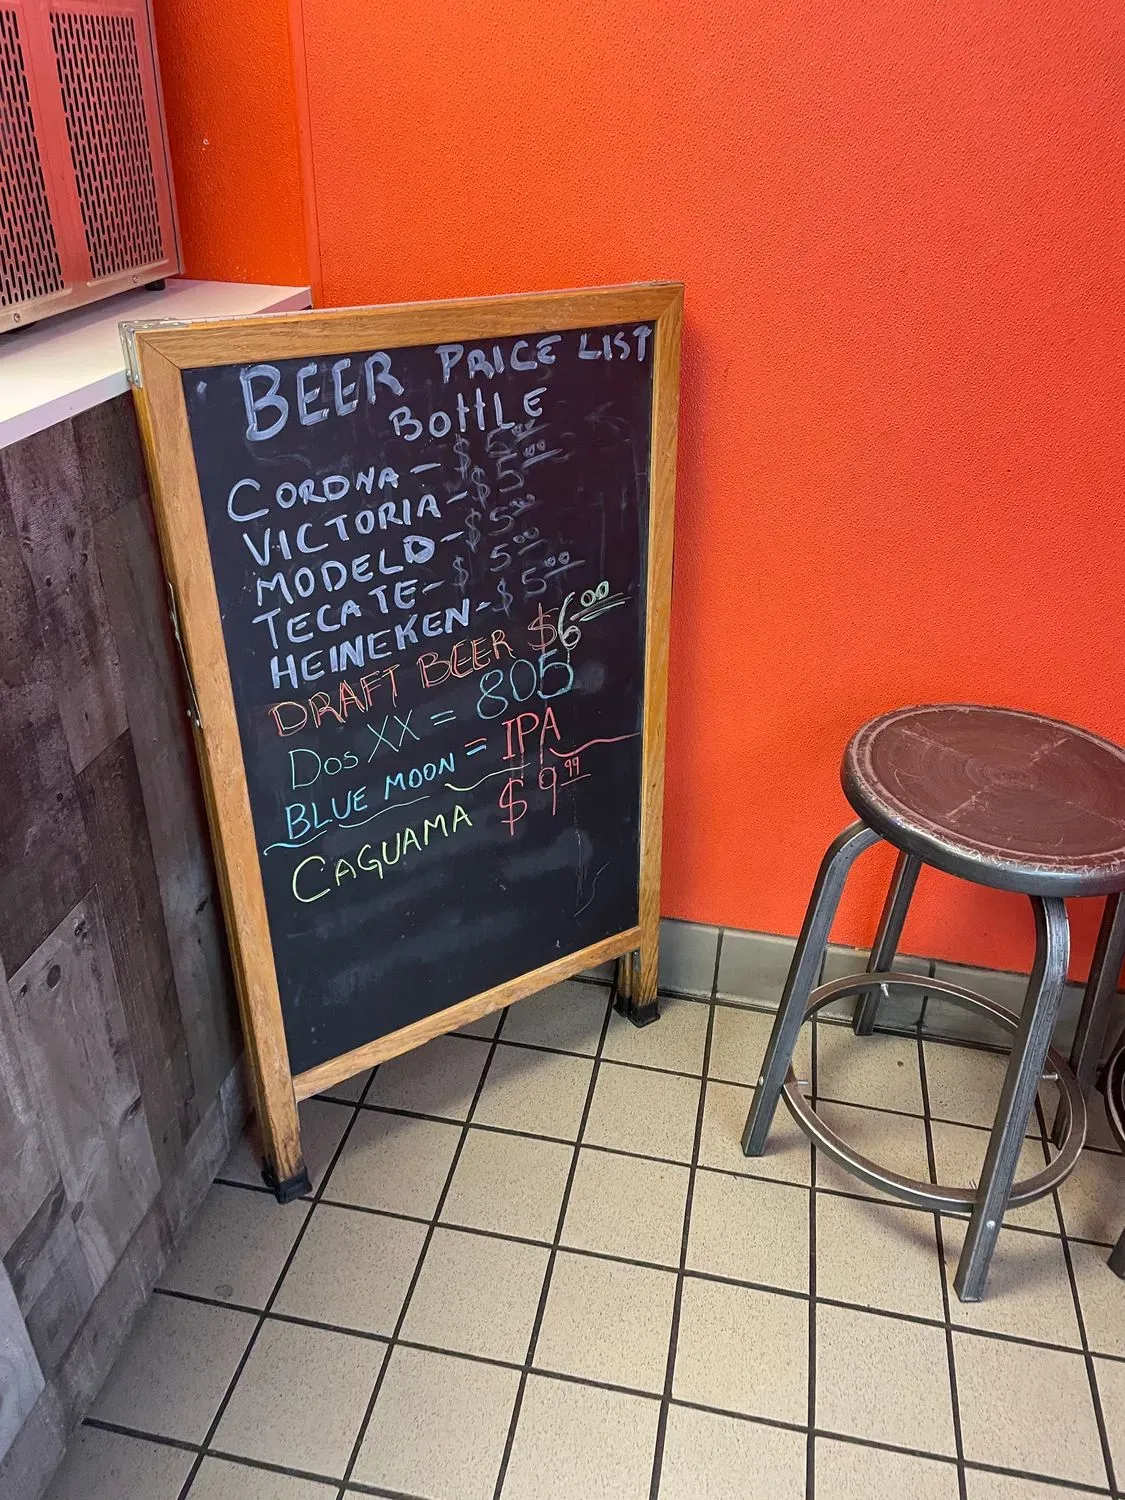 BEER PRICE LIST
BOttLE
CORONA - $ 5.00
VICTORIA - $ 5.00
MODELO - $ 5.00
TECATE - $ 5.00
HEINEKEN - $ 5.00
DRAFT BEER $6.00
Dos XX = 805
BLUE MOON = IPA
CAGUAMA $ 9.99